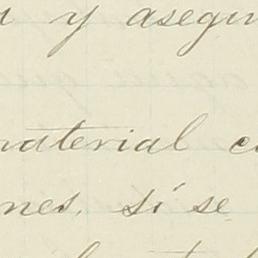 y asegu
material c
nes, si se